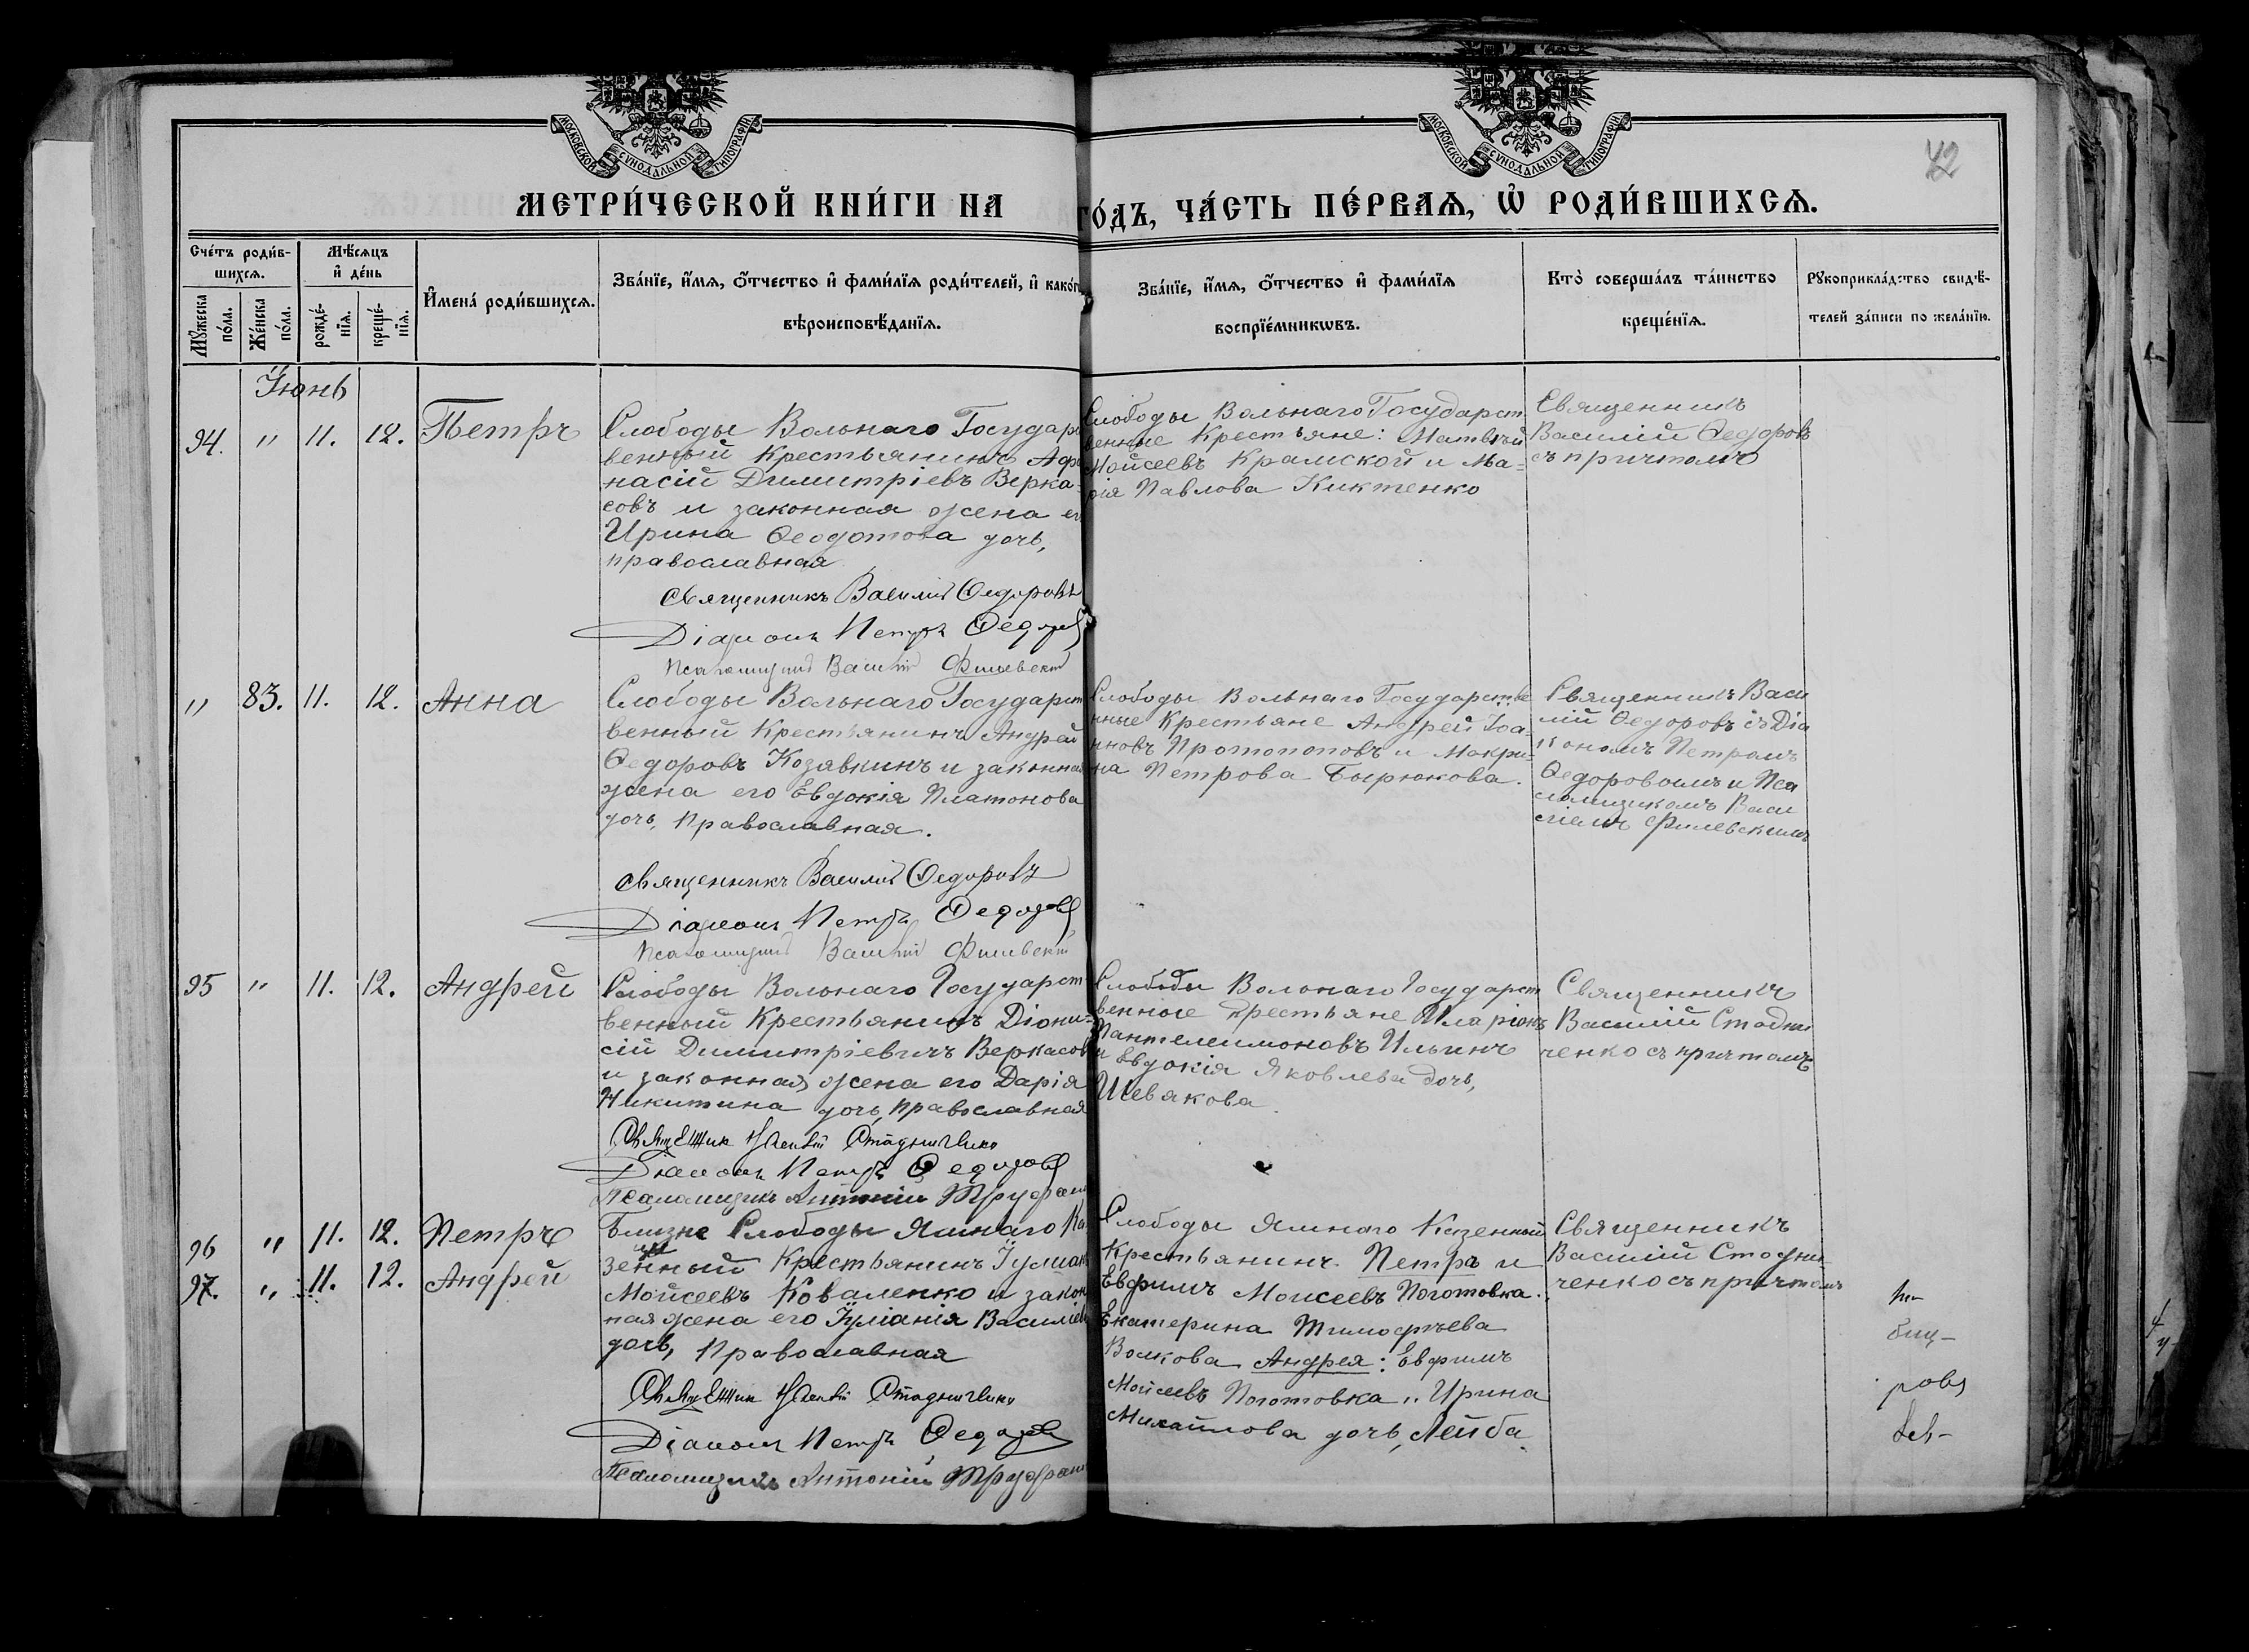 МОСКОВСКОЙ СѴНОДАЛЬНОЙ ТИПОГРАФІИ
МОСКОВСКОЙ СѴНОДАЛЬНОЙ ТИПОГРАФІИ
42
МЕТРИ́ЧЕСКОЙ КНИ́ГИ НА
ГО́ДЪ, ЧА́СТЬ ПЕ́РВАѦ, Ѡ РОДИ́ВШИХСѦ.
Сче́тъ роди́в-
шихсѧ.
Мꙋ́жеска по́ла.
Же́нска по́ла.
Мѣ́сѧцъ
и де́нь
рожде́-
нїѧ.
креще́-
нїѧ.
Имена̀ роди́вшихсѧ.
Зва́нїе, и́мѧ, ѻ́тчество и фами́лїѧ роди́телей, и како́г
вѣроисповѣ́данїѧ.
Зва́нїе, и́мѧ, ѻ́тчество и фами́лїѧ
воспрїе́мникѡвъ.
Кто̀ соверша́лъ та́инство
креще́нїѧ.
Рꙋкоприкла́дство свидѣ́-
телей за́писи по жела́нїю.
Іюнь
94. " 11. 12. Петръ
Слободы Вольнаго Государ
венный Крестьянинъ Афа
насій Димитріевъ Верка-
совъ и законная жена ег
Ирина Ѳеодотова дочь,
православная
Священникъ Василій Ѳедоровъ
Діаконъ Петръ Ѳедоровъ
Псаломщикъ Василій Филевскій
Слободы Вольнаго Государст-
венные Крестьяне: Матвѣй
Мойсеевъ Крамской и Ма-
рія Павлова Киктенко
Священникъ
Василій Ѳедоровъ
съ причтомъ
" 83. 11. 12. Анна
Слободы Вольнаго Государст
венный Крестьянинъ Андрей
Ѳедоровъ Козявкинъ и законная
жена его Евдокія Платонова
дочь, Православная.
Священникъ Василій Ѳедоровъ
Діаконъ Петръ Ѳедоровъ
Псаломщикъ Василій Филевскій
Слободы Вольнаго Государстве
нные Крестьяне Андрей Іоа-
нновъ Протопоповъ и Макри-
на Петрова Бирюкова.
Священникъ Васи
лій Ѳедоровъ съ Діа
кономъ Петромъ
Ѳедоровымъ и Пса
ломщикомъ Васи
ліемъ Филевскимъ
95 " 11. 12. Андрей
Слободы Вольнаго Государст
венный Крестьянинъ Діони-
сій Димитріевичъ Веркасов
и законная жена его Дарія
Никитина дочь, православная
Діаконъ Петръ Ѳедоровъ
Псаломщикъ Антоній
Слободы Вольнаго Государст
венные крестьяне Иларіонъ
Пантелеимоновъ Ильинъ
и Евдокія Яковлева дочь,
Шевякова.
Священникъ
Василій Стадни
ченко съ причтомъ
96 " 11. 12. Петръ
97. " 11. 12. Андрей
Близне Слободы Ямнаго Ка
зенный Крестьянинъ
Мойсеевъ Коваленко и закон
ная жена его Іуліанія Василіев
дочь, Православная
Діаконъ Петръ Ѳедоровъ
Псаломщикъ Антоній
Слободы Ямнаго Казенный
Крестьянинъ. Петра и
Евфимъ Моисеевъ Поготовка.
Екатерина Тимофѣева
Волкова Андрея: Евфимъ
Мойсеевъ Поготовка и Ирина
Михайлова дочь, Лейба.
Священникъ
Василій Стадни-
ченко съ причтомъ